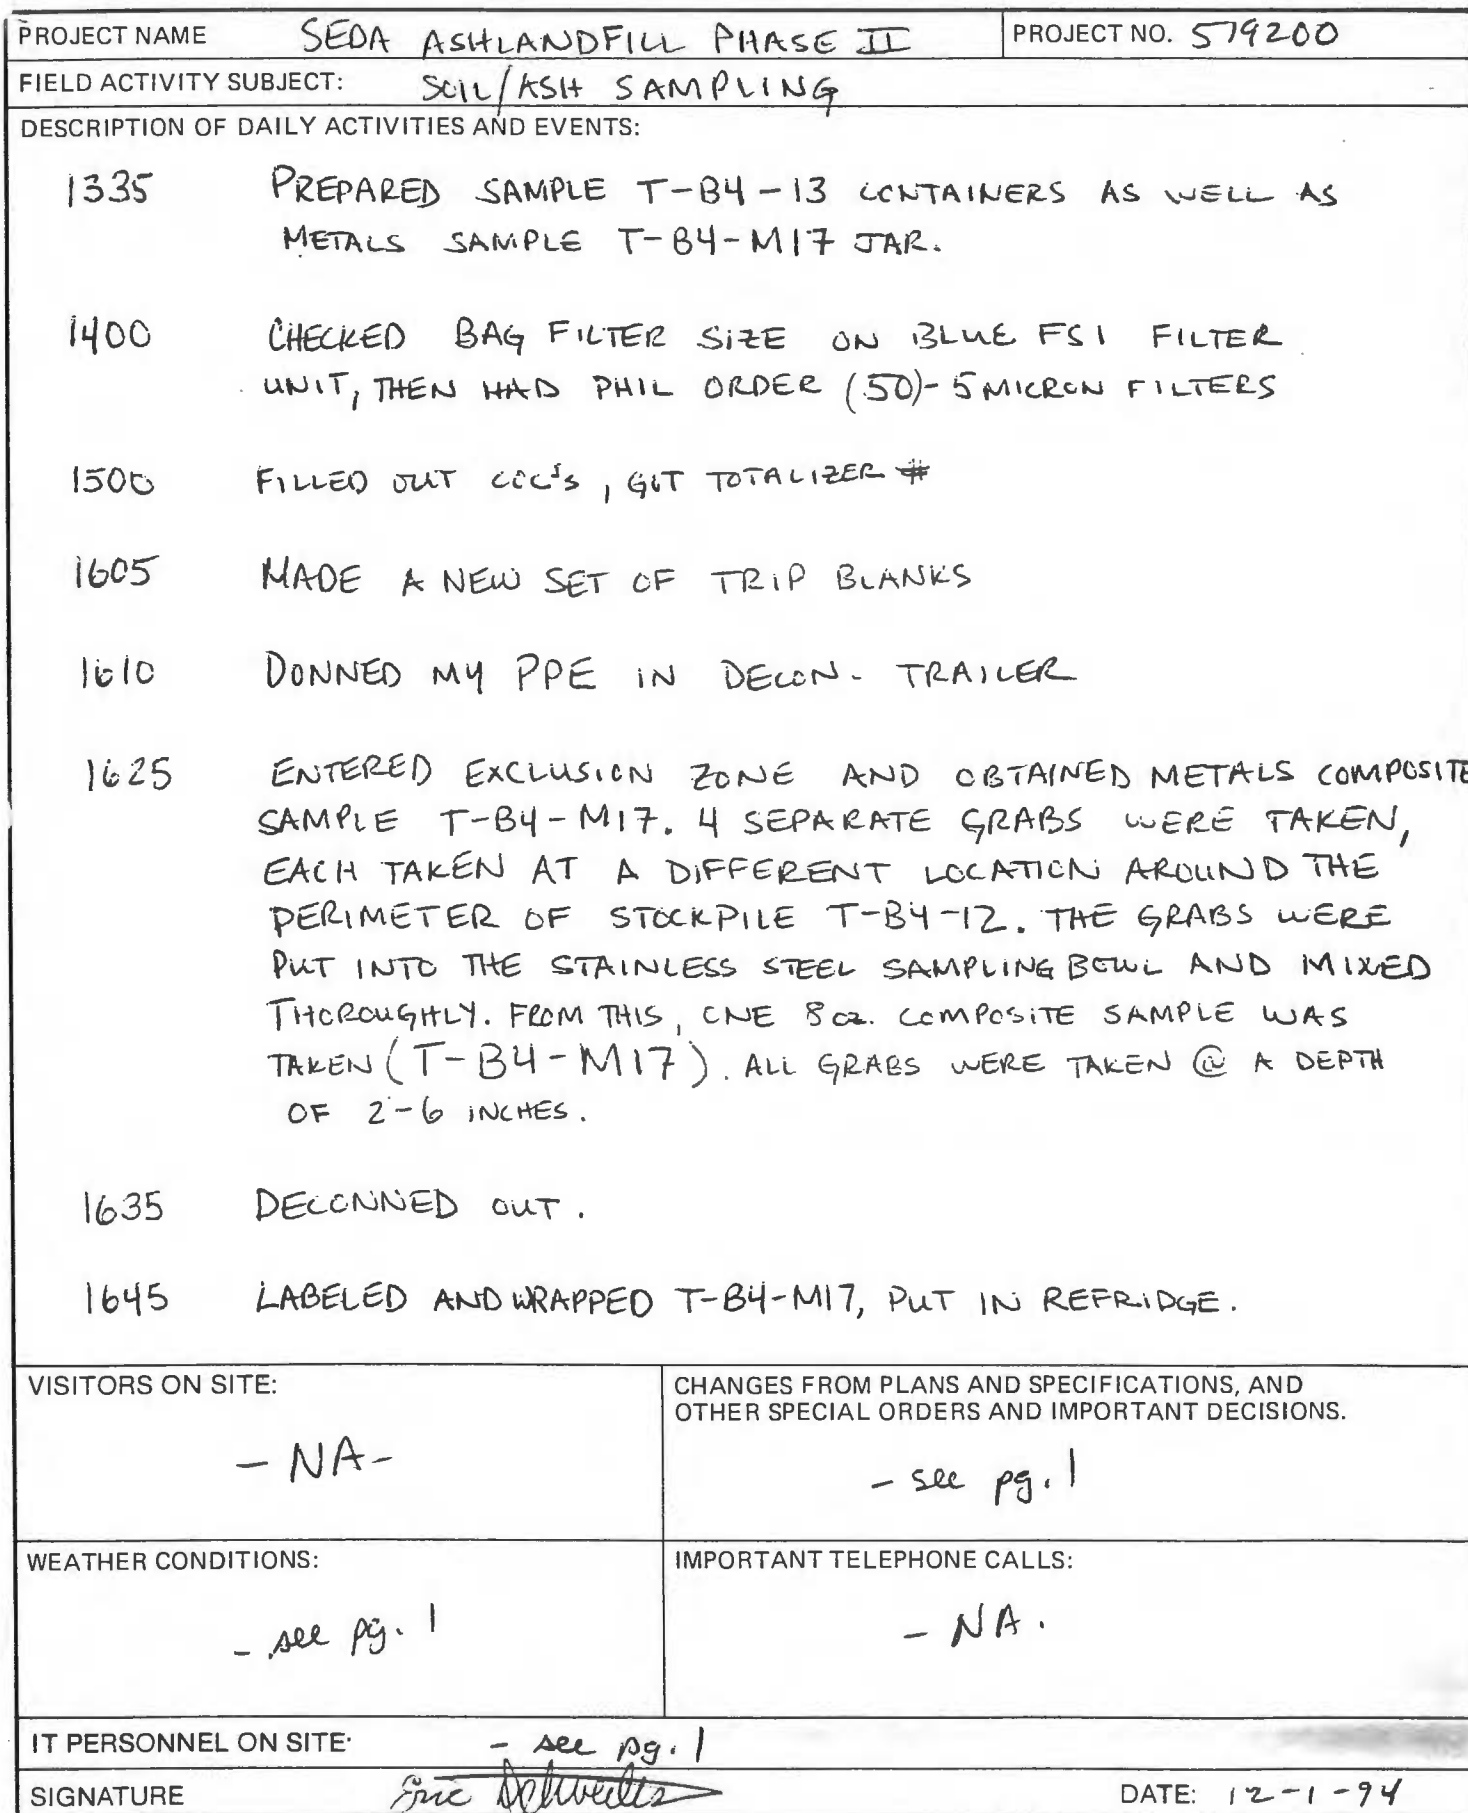 PROJECT NAME SEDA ASHLANDFILL PHASE II PROJECT NO. 579200
FIELD ACTIVITY SUBJECT: SOIL/ASH SAMPLING
DESCRIPTION OF DAILY ACTIVITIES AND EVENTS:
1335 PREPARED SAMPLE T-B4-13 CONTAINERS AS WELL AS
METALS SAMPLE T-B4-M17 JAR.
1400 CHECKED BAG FILTER SIZE ON BLUE FSI FILTER
UNIT, THEN HAD PHIL ORDER (50)-5 MICRON FILTERS
1500 FILLED OUT COC's, GOT TOTALIZER #
1605 MADE A NEW SET OF TRIP BLANKS
1610 DONNED MY PPE IN DECON. TRAILER
1625 ENTERED EXCLUSION ZONE AND OBTAINED METALS COMPOSITE
SAMPLE T-B4-M17. 4 SEPARATE GRABS WERE TAKEN,
EACH TAKEN AT A DIFFERENT LOCATION AROUND THE
PERIMETER OF STOCKPILE T-B4-12. THE GRABS WERE
PUT INTO THE STAINLESS STEEL SAMPLING BOWL AND MIXED
THOROUGHLY. FROM THIS, ONE 8 oz. COMPOSITE SAMPLE WAS
TAKEN (T-B4-M17). ALL GRABS WERE TAKEN @ A DEPTH
OF 2-6 INCHES.
1635 DECONNED OUT.
1645 LABELED AND WRAPPED T-B4-M17, PUT IN REFRIDGE.
VISITORS ON SITE:
- NA -
CHANGES FROM PLANS AND SPECIFICATIONS, AND
OTHER SPECIAL ORDERS AND IMPORTANT DECISIONS.
- see pg. 1
WEATHER CONDITIONS:
- see pg. 1
IMPORTANT TELEPHONE CALLS:
- NA.
IT PERSONNEL ON SITE - see pg. 1
SIGNATURE Eric DATE: 12-1-94